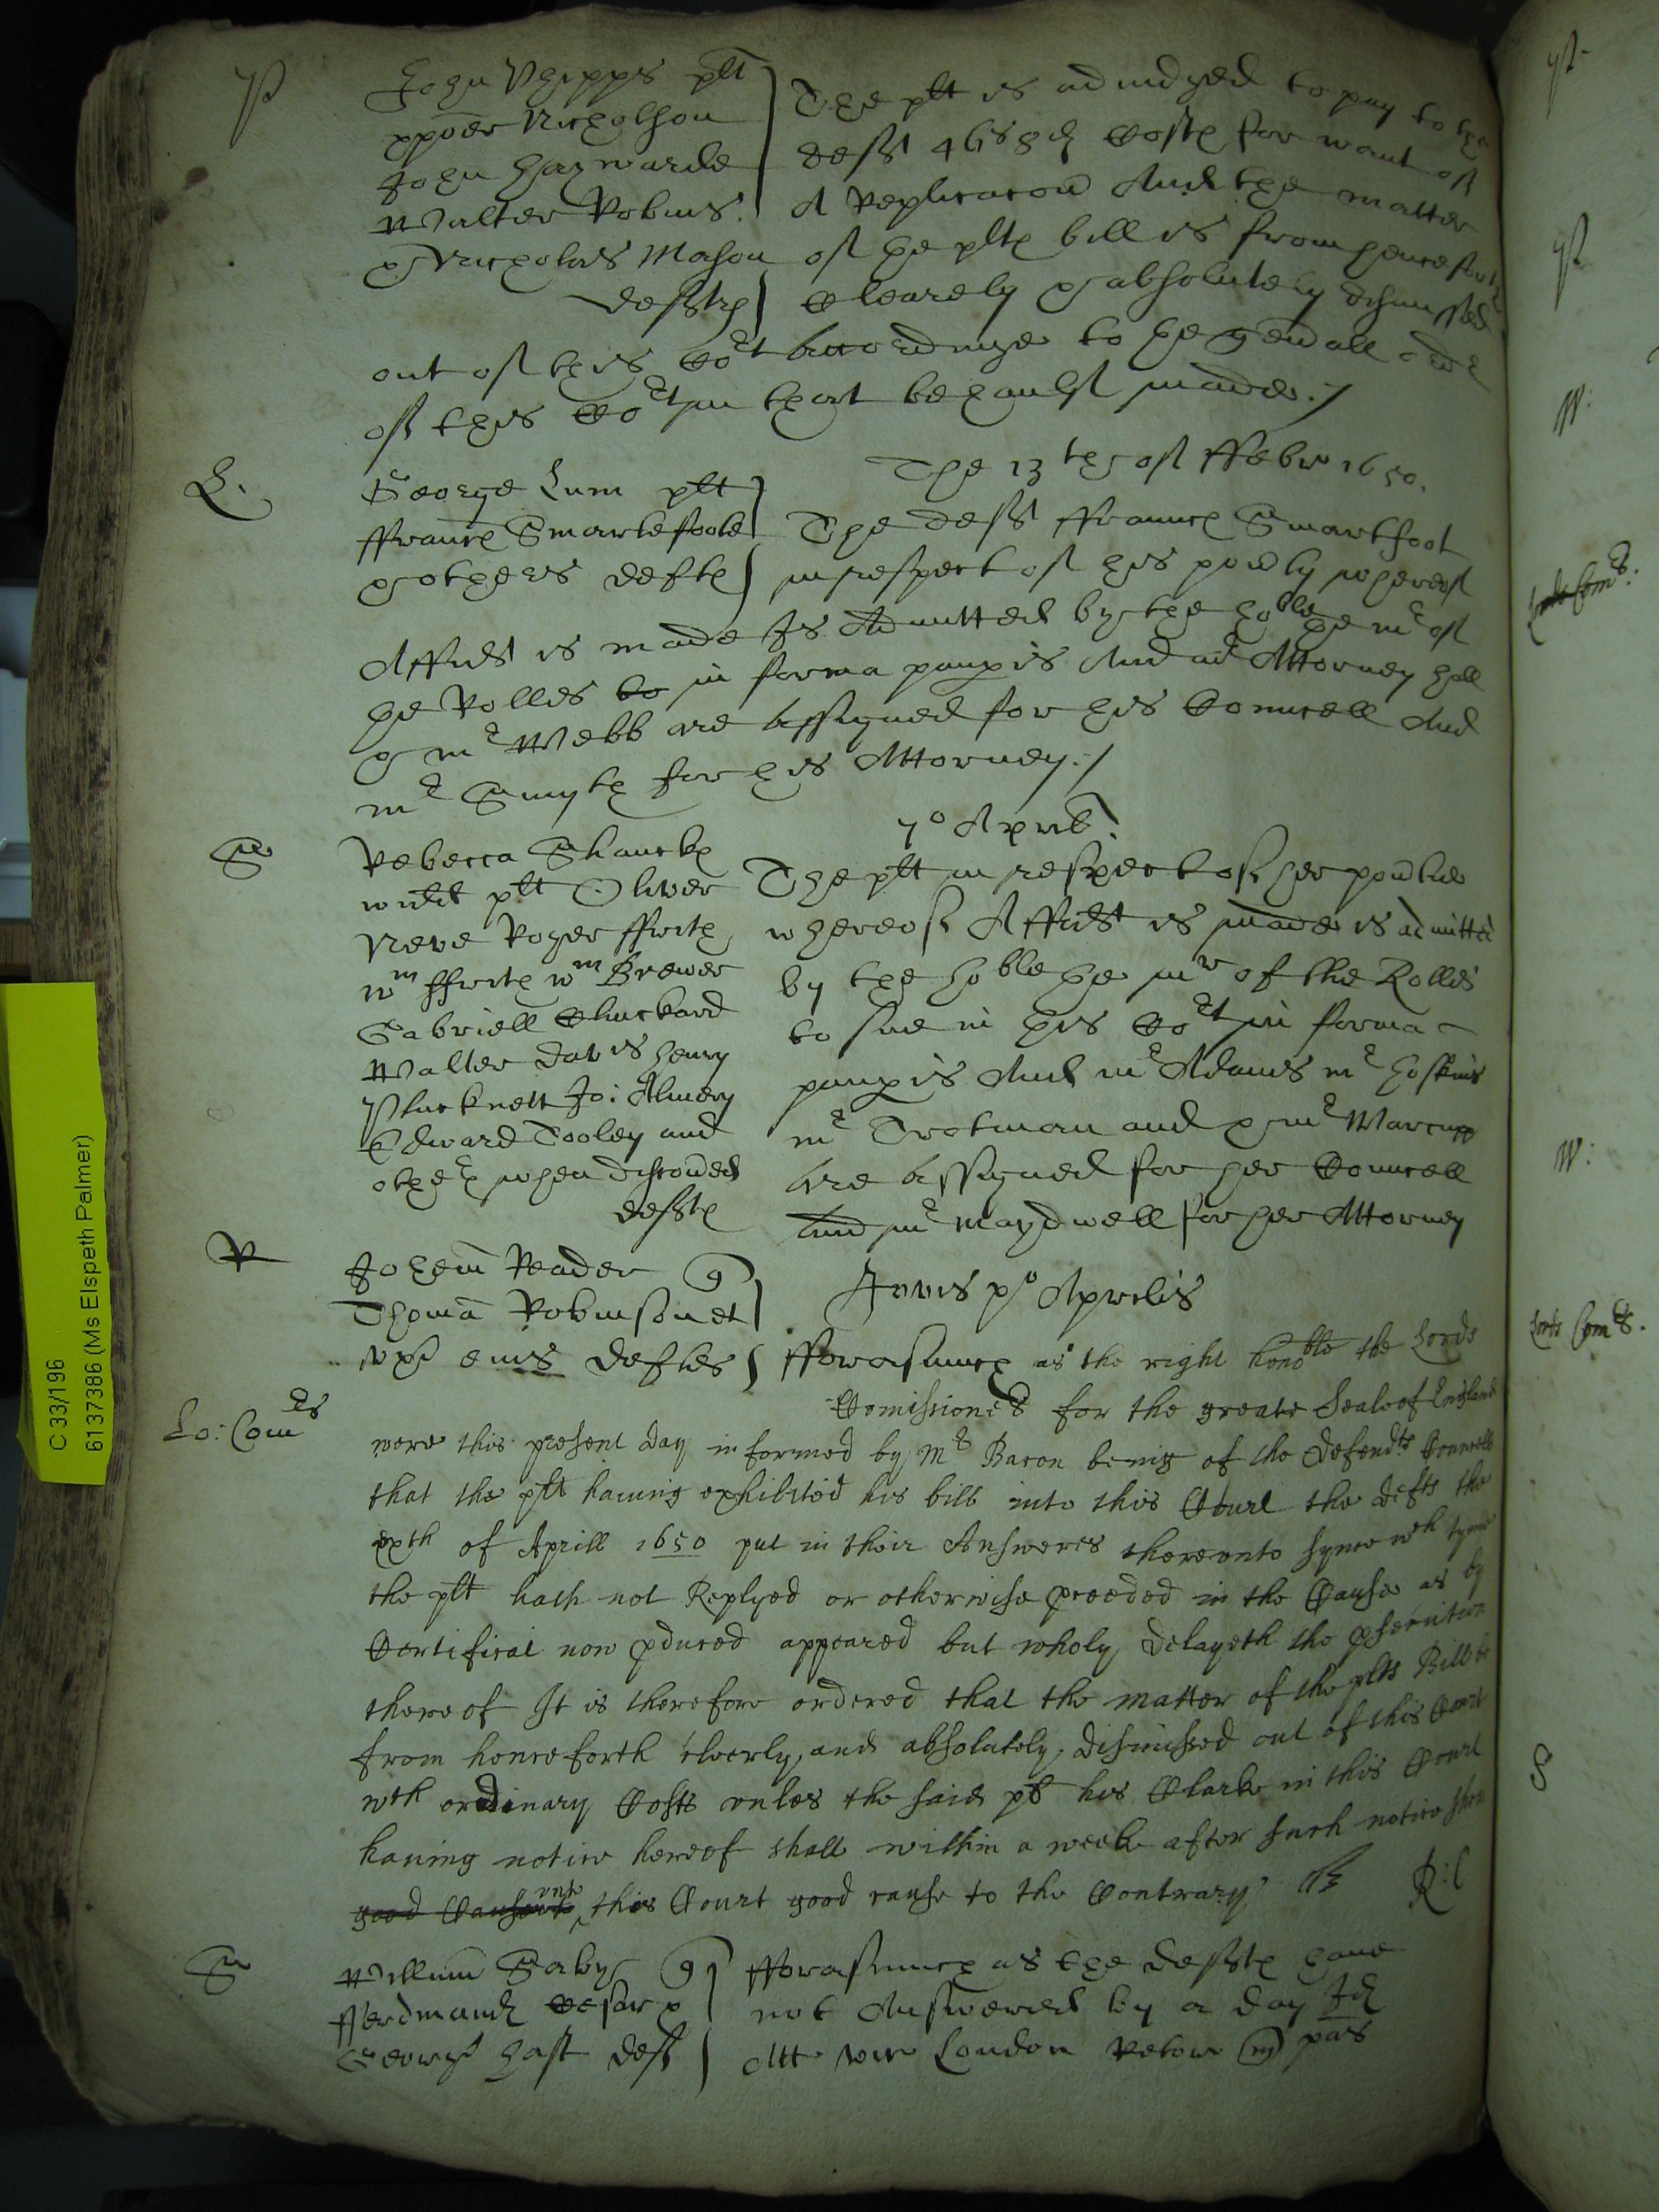 P
John Phipps plt
xpofer Nicholson
John Haywarde
Walter Robins
& Nicholas Mason
defts
The plt is adiudged to pay to the
deft 46s 8d Costs for want of
A Replicacon And the matter
of the plts bill is from henceforth
Clearely & absolutely dismissed
out of this Cot accordinge to the genall ordr
of this Cot in that behaulf made./
L.
George Lum plt
ffraunc Smartefoote
& others defts
The 13th of ffebr 1650.
The deft ffraunc Smartfoot
in respect of his povty whereof
Affidt is made Is Admitted by the hoble the mr of
the Rolles to in forma paupis And mr Attorney hall
& mr Webb are Assigned for his Councell And
mr Smyth for his Attorney./
S
7o Aprill.
Rebecca Shanck
widd plt Oliver
Neve Roger ffrith
Wm ffrith Wm Brewer
Gabriell Cluckard
Walter Davis henry
Plucknett Jo: Almery
Edward Tooley and
othrs when discoved
defts
The plt in respect of her povtie
whereof Affidt is made is admitted
by the hoble the mr of the Rolles
to sue in this Cot in forma
paupis And mr Adams mr Hoskins
mr Trotman and & mr Marcupp
Are Assigned for her Councell
And mr Maydwell for her Attorney
R
Johem Reader q
Thoma Robinson et
ux eius deftes
Jovis po Aprilis
fforasmuch as the right honoble the Lords
Lo: Comrs
Comissionrs for the greate Seale of England
were this present day informed by Mr Bacon being of the Defendts Councell
that the plt having exhibited his bill into this Court the defts the
xxth of Aprill 1650 put in their Answeres thereunto synce wch tyme
the plt hath not Replyed or otherwise pceeded in the Cause as by
Certificat now pduced appeared but wholy delayeth the psecution
thereof It is therefore ordered that the matter of the plts Bill be
from henceforth cleerly and absolutely dismissed out of this Court
wth ordinary Costs unles the said plt his Clarke in this Court
having notice hereof shall within a weeke after such notice shew
good Cause unto this Court good cause to the Contrary
R:C
S
Willium Saby q
fferdinand Cesar &
George hast deft
fforasmuch as the defts have
not Answered by a day Id
Att vic London Retor pas
Lords Comrs.
C 33/196
6137386 (Ms Elspeth Palmer)